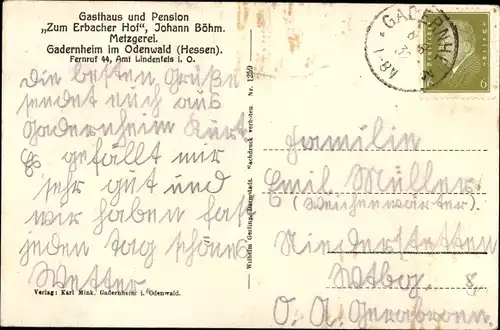 Gasthaus und Pension
„Zum Erbacher Hof", Johann Böhm.
Metzgerei.
Gadernheim im Odenwald (Hessen).
Fernruf 44, Amt Lindenfels i. O.
Die besten Grüße
sendet euch aus
Gadernheim Kurt
Es gefällt mir
sehr gut und
wir haben fast
jeden Tag schönes
Wetter
Verlag: Karl Mink, Gadernheim i. Odenwald.
Wilhelm Gerling, Darmstadt. Nachdruck verboten Nr. 1259
GADERNH
6
Familie
Emil Müller
(Weichenwärter)
Niederstetten
Wtbg.
O. A. Gerabronn